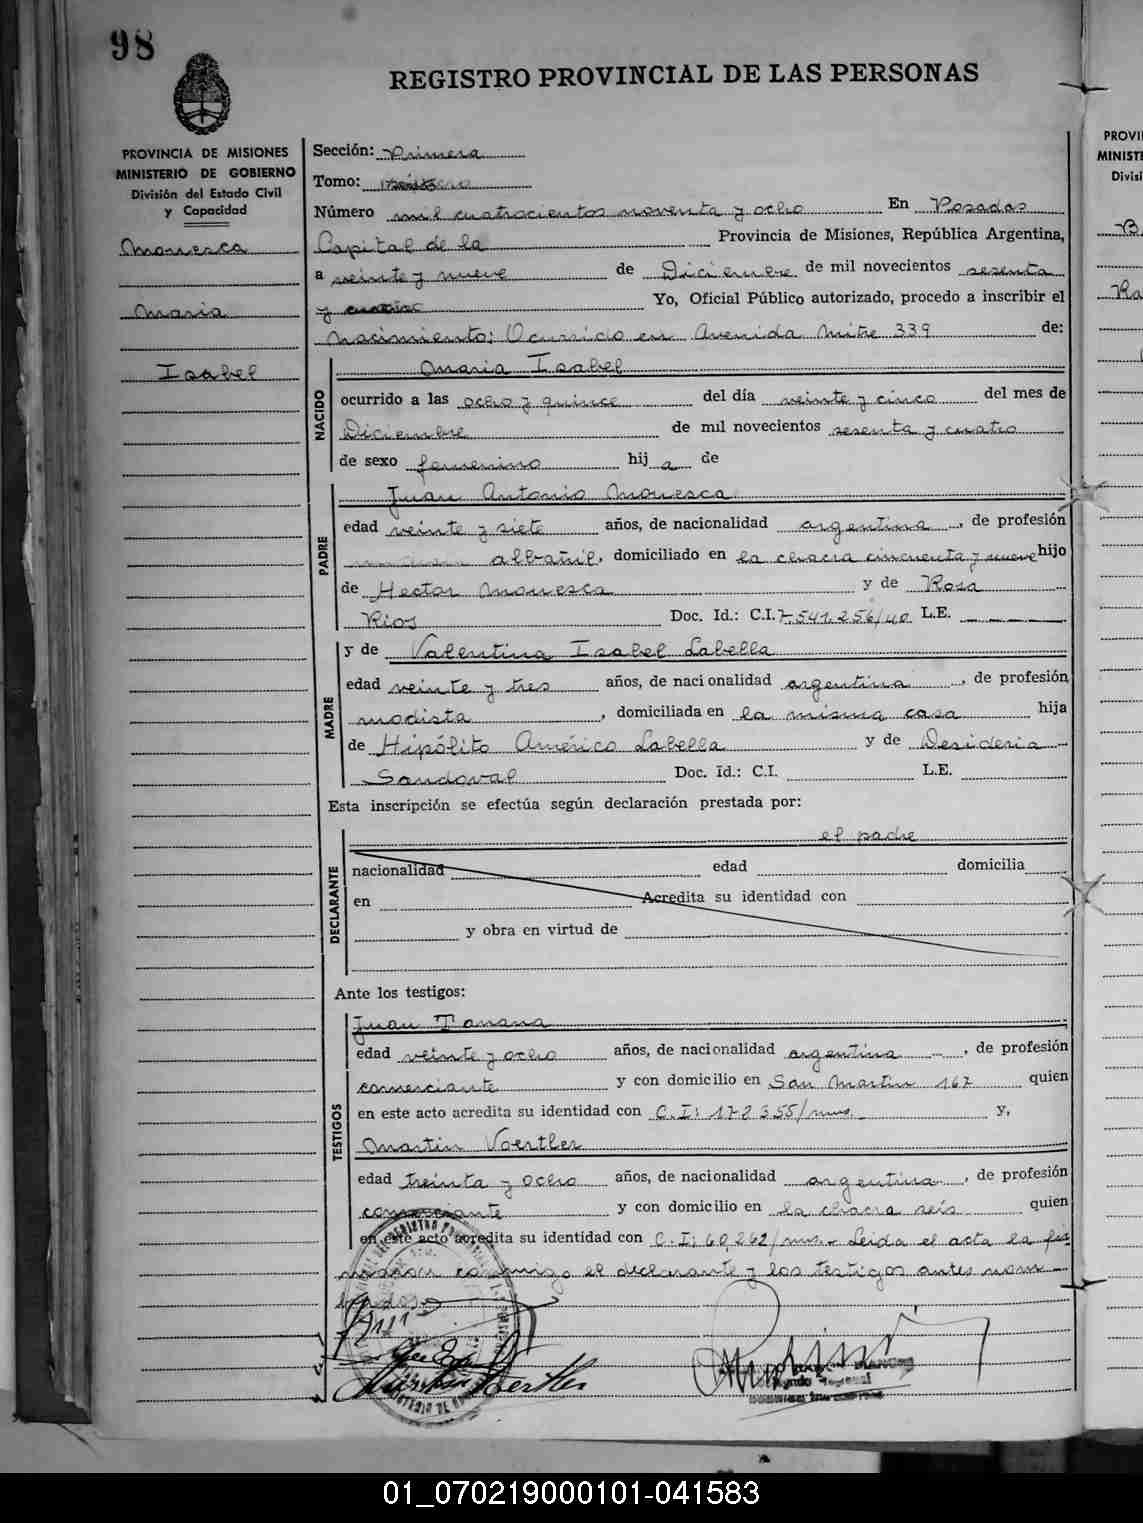 98
REGISTRO PROVINCIAL DE LAS PERSONAS
PROVINCIA DE MISIONES
MINISTERIO DE GOBIERNO
División del Estado Civil
y Capacidad
Monesca
Maria
Isabel
Sección: Primera
Tomo:
Número mil cuatrocientos noventa y ocho En Posadas
Capital de la Provincia de Misiones, República Argentina,
a veinte y nueve de Diciembre de mil novecientos sesenta
y cuatro Yo, Oficial Público autorizado, procedo a inscribir el
nacimiento: Ocurrido en Avenida Mitre 339 de:
NACIDO
Maria Isabel
ocurrido a las ocho y quince del día veinte y cinco del mes de
Diciembre de mil novecientos sesenta y cuatro
de sexo femenino hij a de
PADRE
Juan Antonio Monesca
edad veinte y siete años, de nacionalidad argentina, de profesión
albañil, domiciliado en la chacra cincuenta y nueve hijo
de Hector Monesca y de Rosa
Rios Doc. Id.: C.I. 7.541.256/40 L.E.
MADRE
y de Valentina Isabel Labella
edad veinte y tres años, de nacionalidad argentina, de profesión
modista, domiciliada en la misma casa hija
de Hipólito Américo Labella y de Desideria
Sandoval Doc. Id.: C.I. L.E.
Esta inscripción se efectúa según declaración prestada por:
DECLARANTE
el padre
nacionalidad edad domicilia
en Acredita su identidad con
y obra en virtud de
Ante los testigos:
TESTIGOS
Juan Tanana
edad veinte y ocho años, de nacionalidad argentina, de profesión
comerciante y con domicilio en San Martin 167 quien
en este acto acredita su identidad con C.I: 172355/mns. y,
Martin Voertler
edad treinta y ocho años, de nacionalidad argentina, de profesión
comerciante y con domicilio en la chacra seis quien
en este acto acredita su identidad con C.I: 60,262/mns.- Leida el acta la fir
maron conmigo el declarante y los testigos antes nom-
brados
PROVI
MINISTE
Divisi
01_070219000101-041583